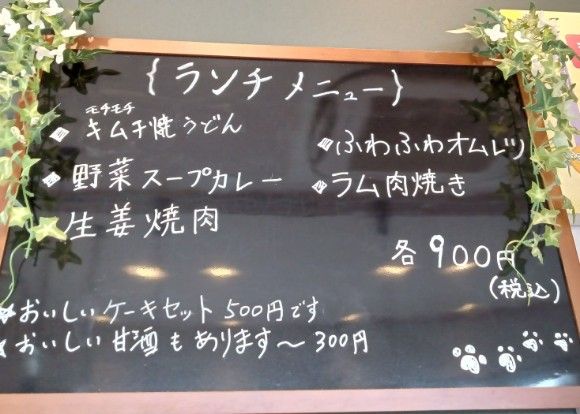 {ランチメニュー}
モチモチ
キムチ焼うどん
ふわふわオムレツ
野菜スープカレー
ラム肉焼き
生姜焼肉
各900円
(税込)
おいしいケーキセット 500円です
おいしい甘酒もあります〜300円